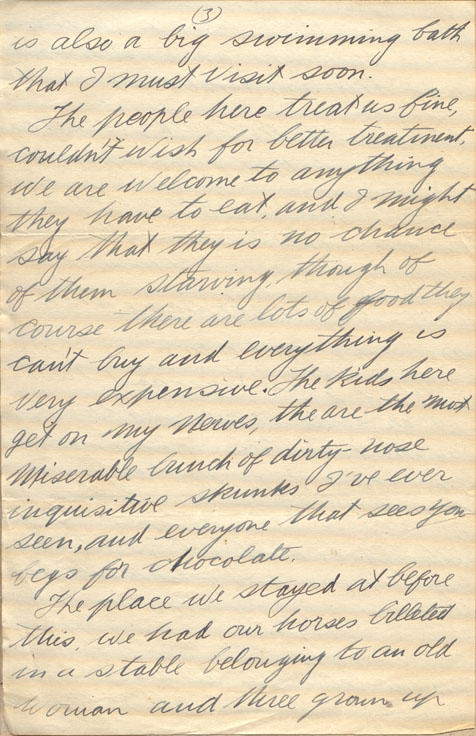 (3)
is also a big swimming bath
that I must visit soon.
The people here treat us fine,
couldn't wish for better treatment,
we are welcome to anything
they have to eat, and I might
say that they is no chance
of them starving, though of
course there are lots of food they
can't buy and everything is
very expensive. The kids here
get on my nerves, the are the most
miserable bunch of dirty-nose
inquisitive skunks I've ever
seen, and everyone that sees you
begs for chocolate.
The place we stayed at before
this, we had our horses billeted
in a stable belonging to an old
woman and three grown up